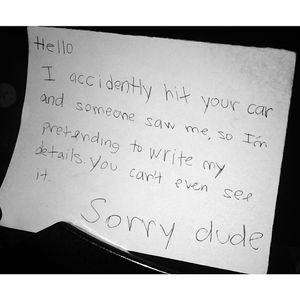 Hello
I accidently hit your car
and someone saw me, so I'm
pretending to write my
details. You can't even see
it.
Sorry dude